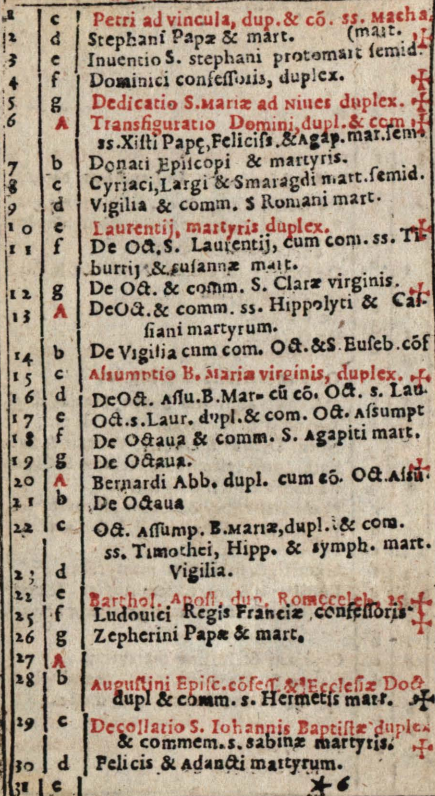 1 c Petri ad vincula, dup. & cō. ss. Macha.
2 d Stephani Papæ & mart. (mart.
3 e Inuentio S. stephani protomart semid.
4 f Dominici confessoris, duplex.
5 g Dedicatio S. Mariæ ad Niues duplex.
6 A Transfiguratio Domini, dupl. & com
ss. Xisti Papę, Feliciss. & Agap. mar. sem
7 b Donati Episcopi & martyris.
8 c Cyriaci, Largi & Smaragdi mart. semid.
9 d Vigilia & comm. S Romani mart.
10 e Laurentij, martyris duplex.
11 f De Oct. S. Laurentij, cum com. ss. Ti
burtij & susannæ mart.
12 g De Oct. & comm. S. Claræ virginis.
13 A De Oct. & comm. ss. Hippolyti & Cas
siani martyrum.
14 b De Vigilia cum com. Oct. & S. Euseb. cōf
15 c Assumptio B. Mariæ virginis, duplex.
16 d De Oct. Assu. B. Mar- cū cō. Oct. s. Lau
17 e Oct. s. Laur. dupl. & com. Oct. Assumpt
18 f De Octaua & comm. S. Agapiti mart.
19 g De Octaua.
20 A Bernardi Abb. dupl. cum cō. Oct. Assu.
21 b De Octaua
22 c Oct. Assump. B. Mariæ, dupl. & com.
ss. Timothei, Hipp. & symph. mart.
23 d Vigilia.
22 e Barthol. Apost. dup. Romę celeb. 25
25 f Ludouici Regis Franciæ confessoris
26 g Zepherini Papæ & mart.
27 A
28 b Augustini Episc. cōfess. & Ecclesiæ Doct
dupl & comm. s. Hermetis mart.
29 c Decollatio S. Iohannis Baptistæ duplex
& commem. s. sabinæ martyris.
30 d Felicis & Adaucti martyrum.
31 e * 6